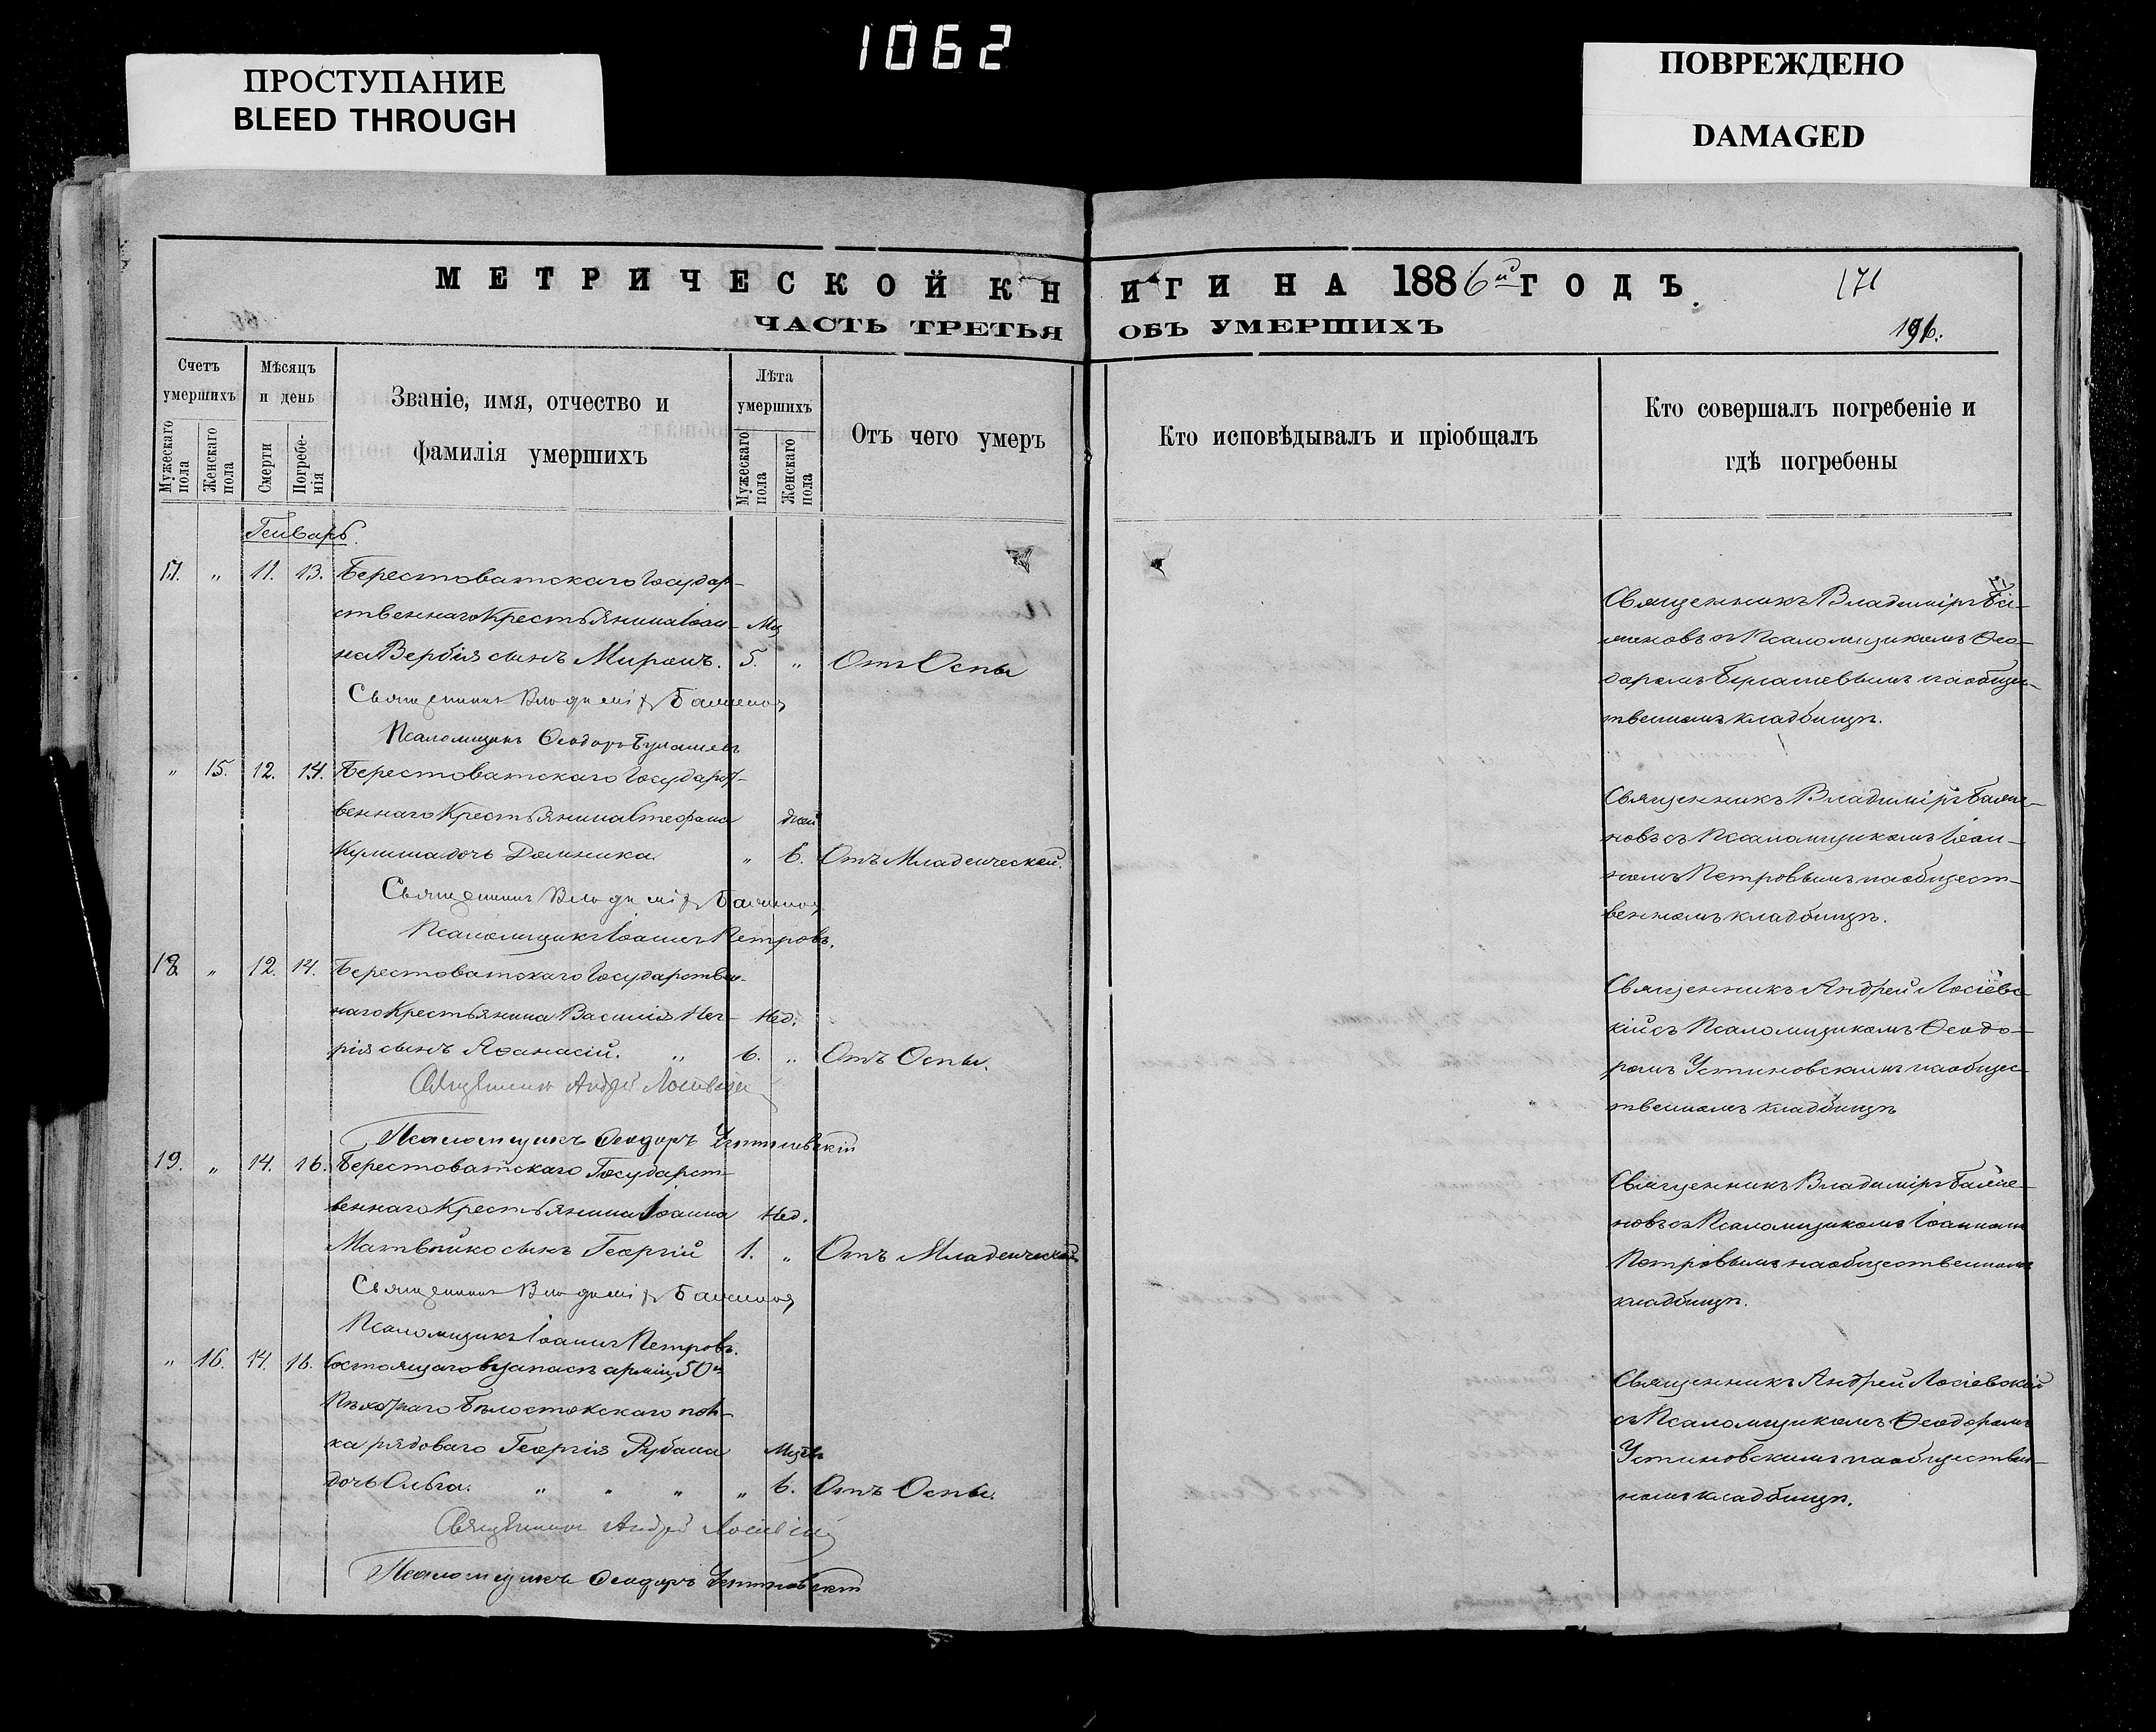 1062
ПРОСТУПАНИЕ
BLEED THROUGH
ПОВРЕЖДЕНО
DAMAGED
МЕТРИЧЕСКОЙ КНИГИ НА 1886й ГОДЪ.
171
ЧАСТЬ ТРЕТЬЯ ОБЪ УМЕРШИХЪ
196.
Счетъ умершихъ
Мужескаго пола
Женскаго пола
Мѣсяцъ и день
Смерти
Погребе-нія
Званіе, имя, отчество и
фамилія умершихъ
Лѣта умершихъ
Мужескаго пола
Женскаго пола
Отъ чего умеръ
Кто исповѣдывалъ и пріобщалъ
Кто совершалъ погребеніе и
гдѣ погребены
Генварь.
17. " 11. 13. Берестоватскаго Государ-
ственнаго Крестьянина Іоан- Мц
на Вербія сынъ Миронъ. 5. " Отъ Оспы
Священникъ Владиміръ
Псаломщикъ Ѳеодоръ
Священникъ Владиміръ
с Псаломщикомъ Ѳео-
доромъ на общес-
твенномъ кладбищѣ.
" 15. 12. 14. Берестоватскаго Государст-
веннаго Крестьянина Стефана дней
Кулиша дочь Домника. " 6. Отъ Младенческой.
Священникъ Владиміръ
Псаломщикъ Іоаннъ Петровъ.
Священникъ Владиміръ
съ Псаломщикомъ Іоан-
номъ Петровымъ на общест-
венномъ кладбищѣ.
18. " 12. 14. Берестоватскаго Государствен-
наго Крестьянина Василія Нед.
сынъ Аѳанасій. " 6. " Отъ Оспы.
Священникъ Андрей Лосіевскій
Псаломщикъ Ѳеодоръ Устиновскій
Священникъ Андрей Лосіевс-
кій съ Псаломщикомъ Ѳеодо-
ромъ Устиновскимъ на общес-
твенномъ кладбищѣ
19. " 14. 16. Берестоватскаго Государст-
веннаго Крестьянина Іоанна Нед.
Матвѣйко сынъ Георгій 1. " Отъ Младенческой
Священникъ Владиміръ
Псаломщикъ Іоаннъ Петровъ.
Священникъ Владиміръ
съ Псаломщикомъ Іоанномъ
Петровымъ на общественномъ
кладбищѣ.
" 16. 14. 16. Состоящаго въ запасѣ арміи, 50го
Пѣхотнаго Бѣлостокскаго пол-
ка рядоваго Георгія Рубана Мцев
дочь Ольга. " " " " 6. Отъ Оспы.
Священникъ Андрей Лосіевскій
Псаломщикъ Ѳеодоръ Устиновскій
Священникъ Андрей Лосіевскій
съ Псаломщикомъ Ѳеодоромъ
Устиновскимъ на обществен-
номъ кладбищѣ.